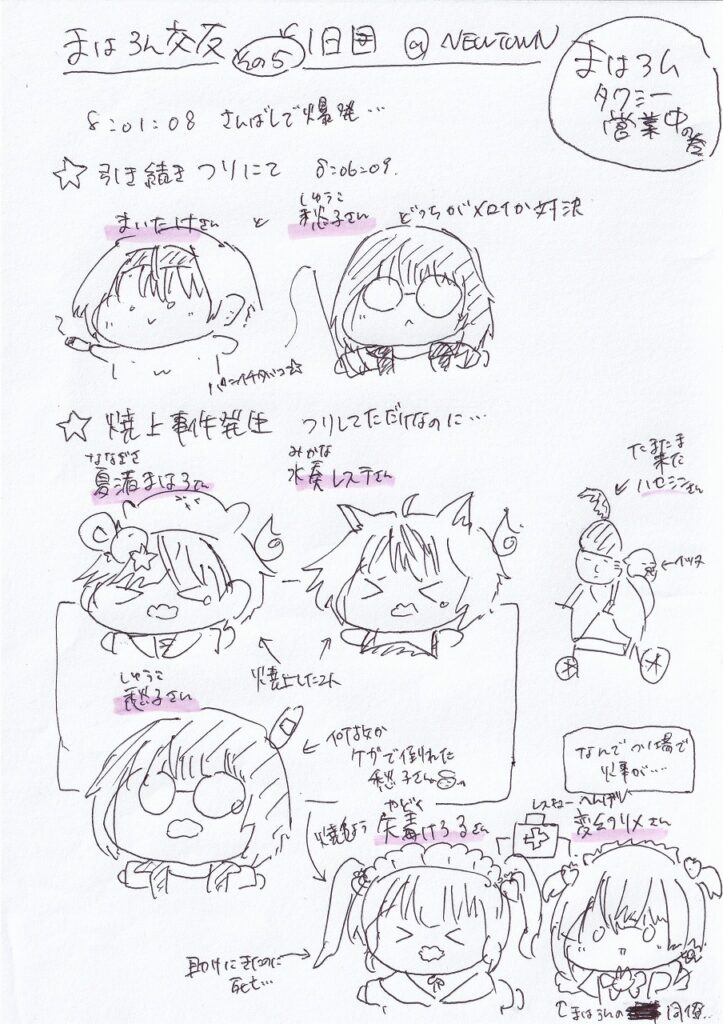 まはろん交友 その5 1日目 @ NEWTOWN
まはろん
タクシー
営業中の巻
8:01:08 さんばしで爆発…
☆引き続き つりにて 8:06:09.
まいたけさん と
しゅうこ
愁子さん どっちがメロイか対決
☆炎上事件発生 つりしてただけなのに…
ななぎさ
夏渚まはろさん
みかな
水奏レステさん
たまたま
来た
ハセシンさん
炎上した2人
しゅうこ
愁子さん
何故か
ケガで倒れた
愁子さん
なんでつり場で
火事が…
やどく
矢毒けろるさん
レスキュー
変幻リメさん
助けにきたのに
死亡…
まはろんの 同僚..